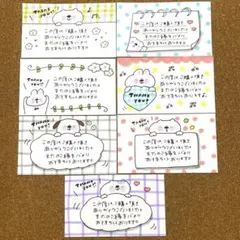 THANK YOU!
この度はご購入頂き
ありがとうございました
またのご縁を心より
お待ちしております
この度はご購入頂き
ありがとうございました
またのご縁を心より
お待ちしております
THANK YOU!
この度はご購入頂き
ありがとうございました
またのご縁を心より
お待ちしております
THANK YOU!
この度はご購入頂き
ありがとうございました
またのご縁を心より
お待ちしております
THANK YOU!
この度はご購入頂き
ありがとうございました
またのご縁を心より
お待ちしております
この度はご購入頂き
ありがとうございました
またのご縁を心より
お待ちしております
THANK YOU!
この度はご購入頂き
ありがとうございました
またのご縁を心より
お待ちしております